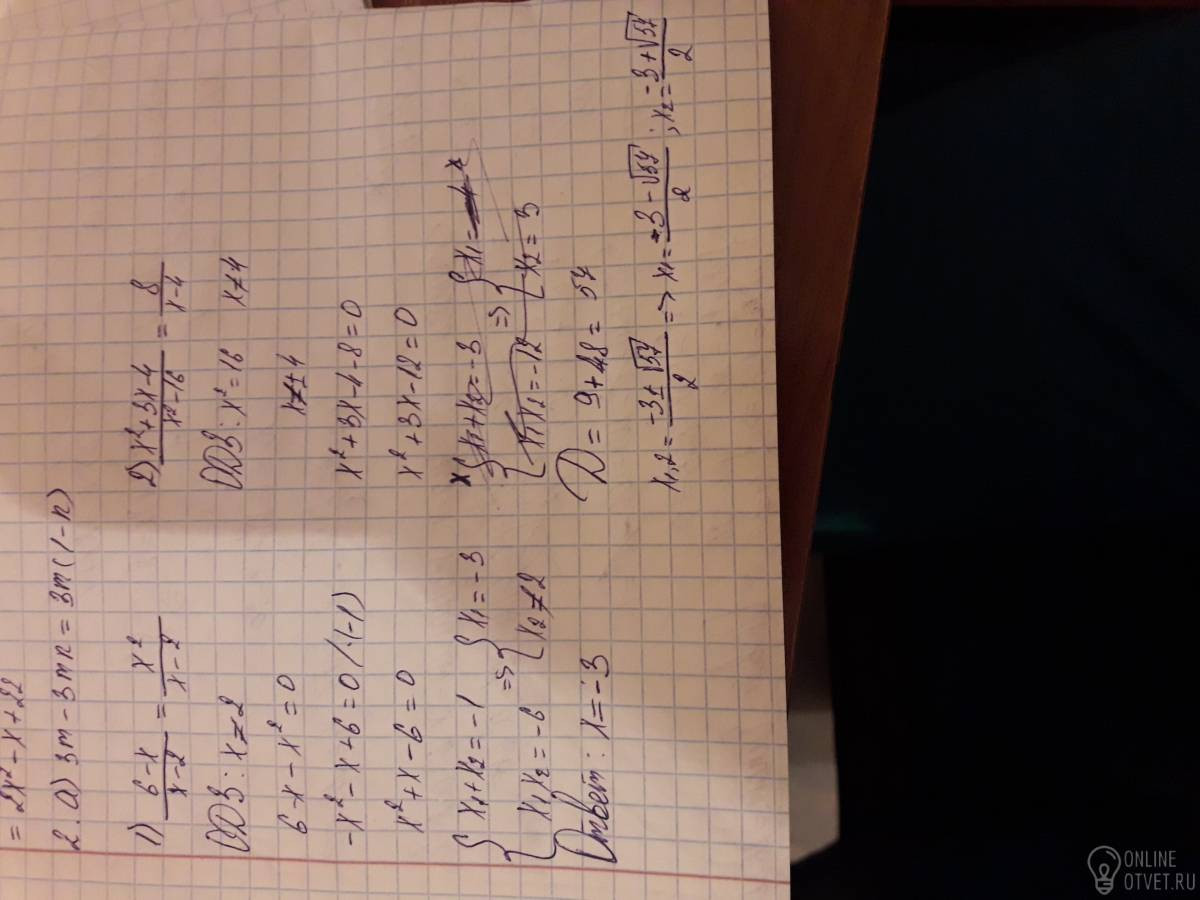 = 2x² - x + 22
2. а) 3m - 3mn = 3m(1-n)
1) (6-x)/(x-2) = x²/(x-2)
ОДЗ: x≠2
6 - x - x² = 0
-x² - x + 6 = 0 /·(-1)
x² + x - 6 = 0
{ x₁ + x₂ = -1
{ x₁x₂ = -6
=> { x₁ = -3
{ x₂ ≠ 2
Ответ: x = -3
2) (x²+3x-4)/(x²-16) = 8/(x-4)
ОДЗ: x² = 16 x≠4
x≠±4
x² + 3x - 4 - 8 = 0
x² + 3x - 12 = 0
{ x₁ + x₂ = -3
{ x₁x₂ = -12
=> { x₁ =
{ x₂ = 3
D = 9 + 48 = 57
x₁,₂ = (-3±√57)/2 => x₁ = (-3-√57)/2 ; x₂ = (-3+√57)/2
ONLINE
OTVET.RU